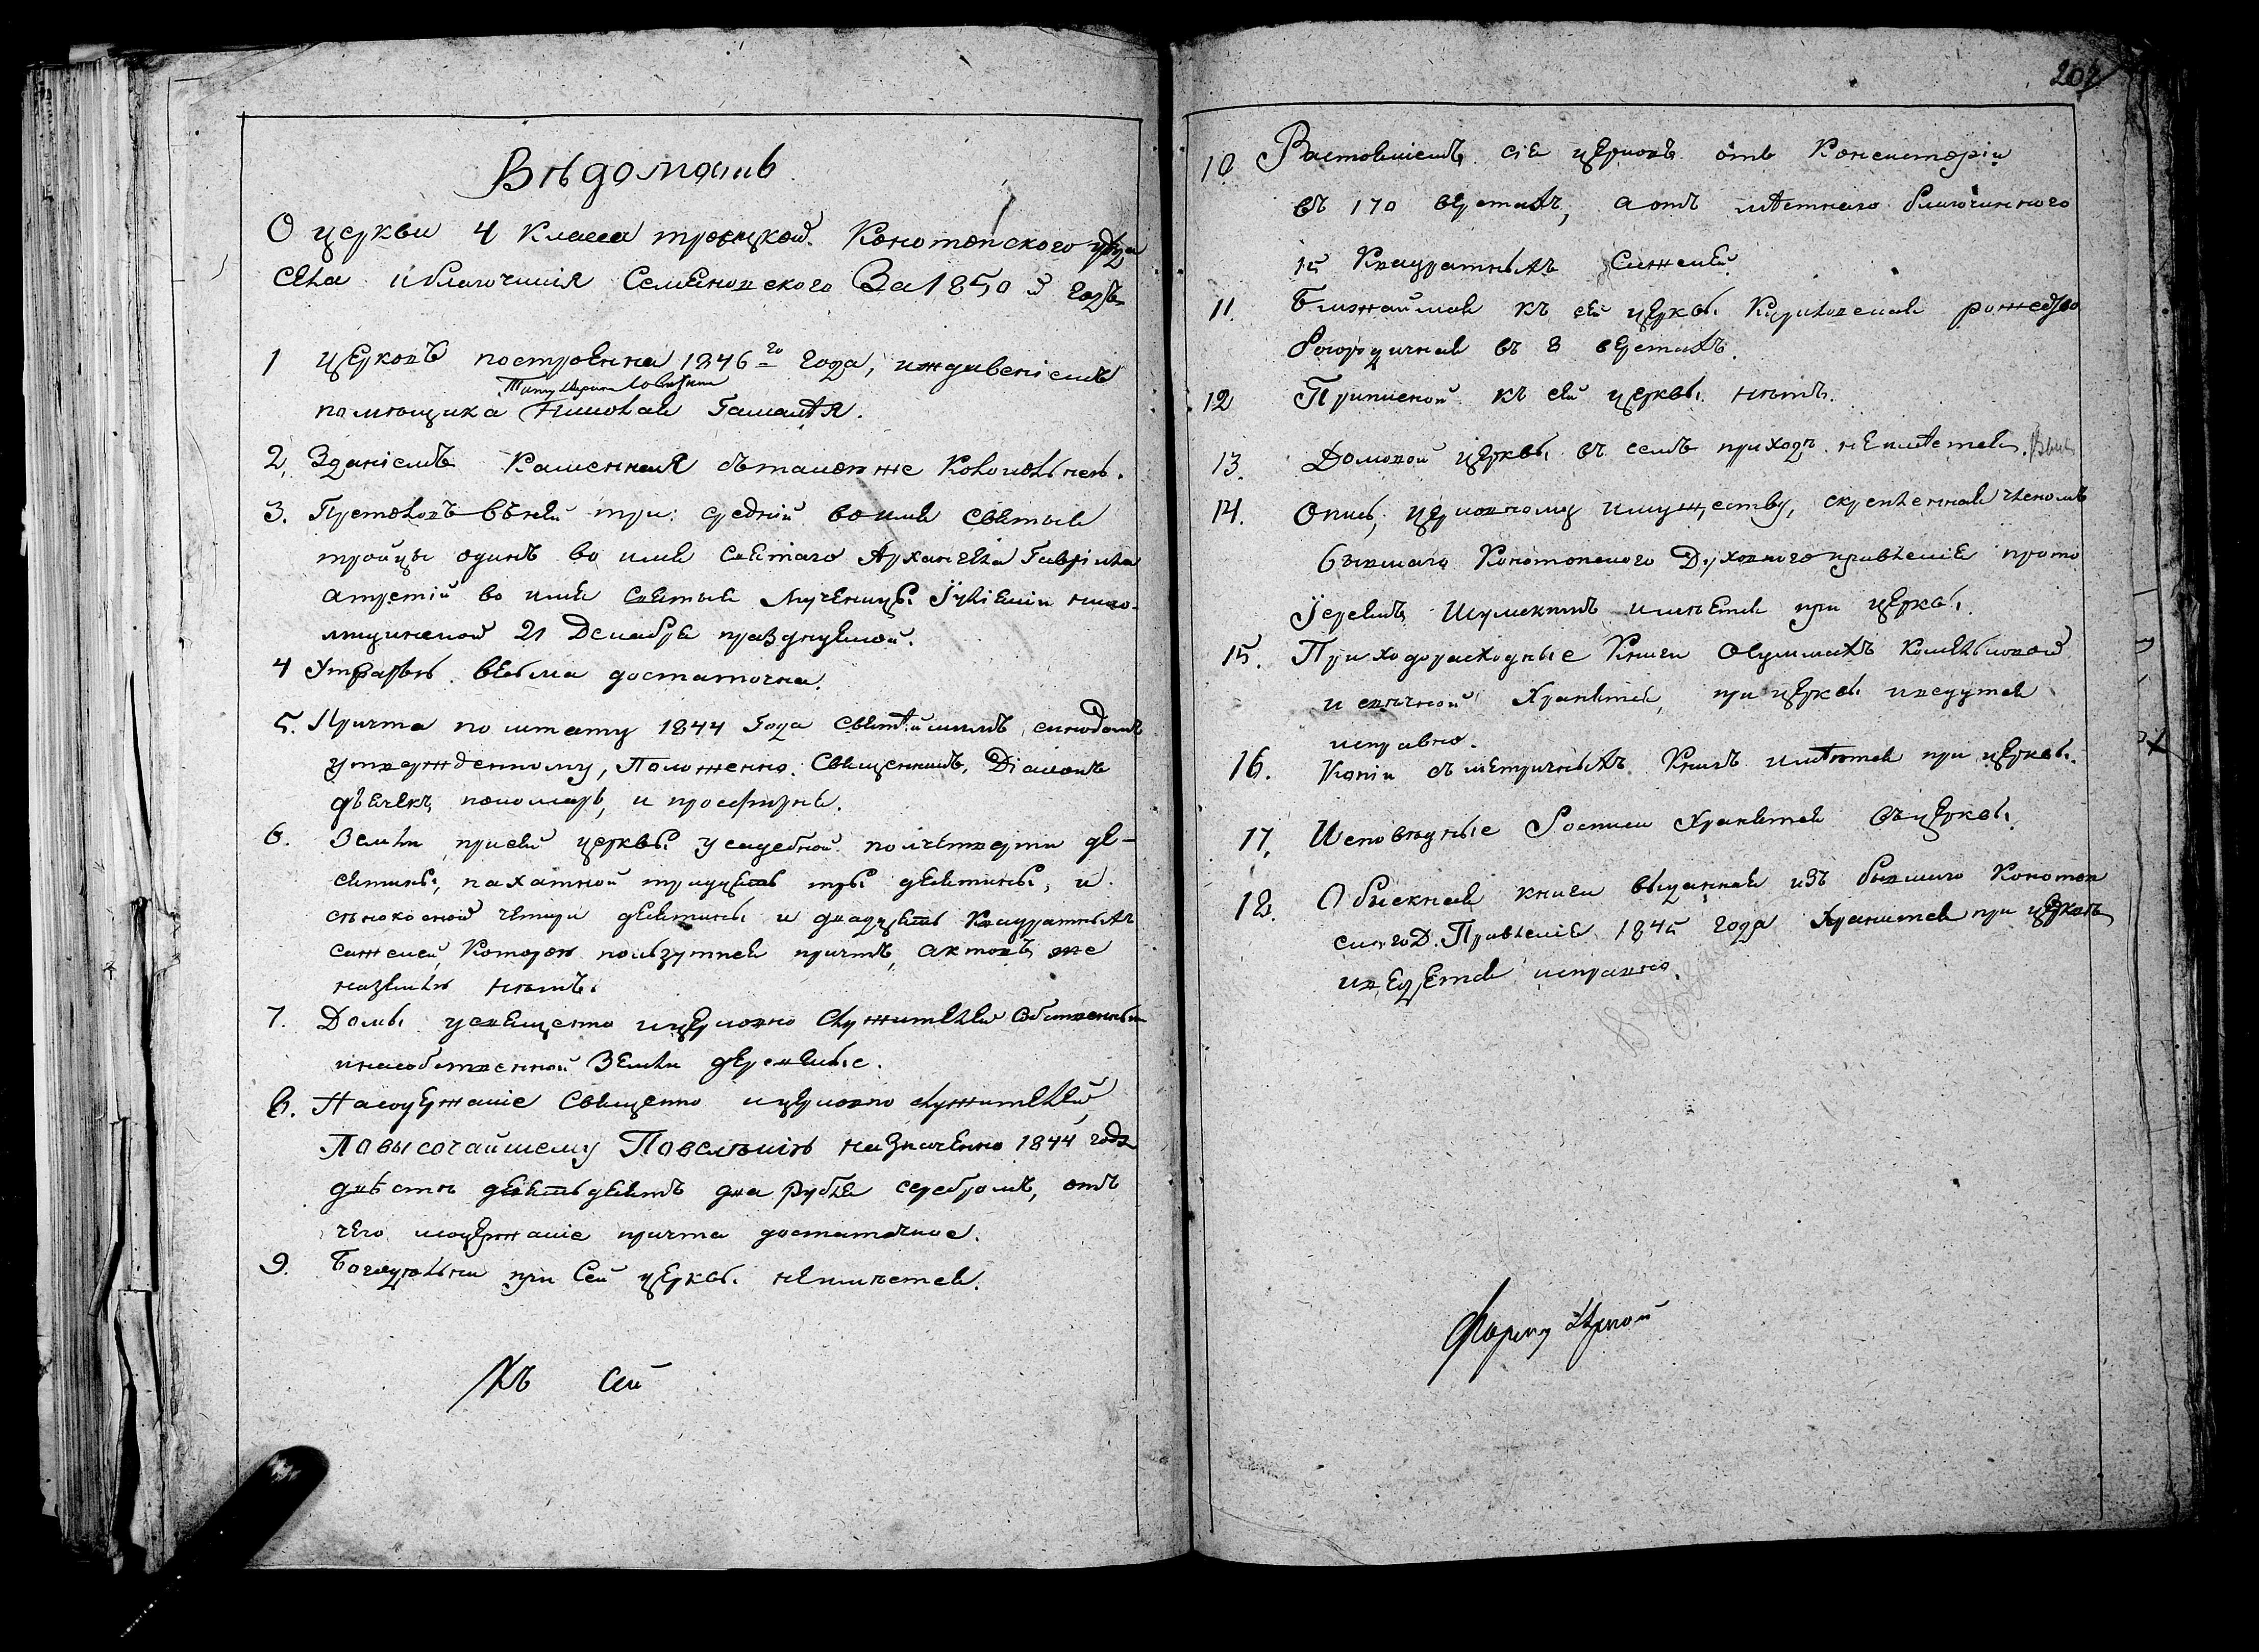 Вѣдомость
О церкви 4 класса троицкой Конотопского уѣзда
села и благочинія Семеновского За 1850 й годъ
1 Церковь построенна 1846го года, иждивеніемъ
помѣщика Николая Гамалѣя.
2. Зданіемъ Каменная съ такою же Колокольнею.
3. Престоловъ въ ней три: средній во имя святыя
тройцы одинъ во имя святаго Архангела Гавріила
а третій во имя святыя мученицы Іуліаніи нико-
мидийской 21 Декабря празднуемой.
4 Утварью весьма достаточна.
5. Причта по штату 1844 Года святѣйшимъ синодомъ
утвержденному, Положенно. Священникъ, Діаконъ
дьячекъ, пономарь, и просфирня.
6. Земли при сей церквы усадебной полчетверти де-
сятины, пахатной тридцать три десятины, и
сѣнокосной четири десятины и двадцать Квадратныхъ
саженей, Которою пользуется причтъ, актовъ же
на землю нѣтъ.
7. Домы у священно и церковно служителей собственныи
и на собственной Земли деревяные.
8. На содержаніе Священно и церковно служителей
По высочайшему Повелѣнію назначенно 1844 года
двѣсти девятьдесятъ два рубля серебромъ, отъ
чего и содержаніе причта достаточное.
9. Богадѣльни при Сей церквы не имѣется.
Къ Сей
207
10 Растояніемъ сія церковь отъ Консисторіи
въ 170 верстахъ, а отъ мѣстнаго благочинного
15 Квадратныхъ Саженей
11. Ближайшая къ сей церквы рожество
богородичная въ 8 верстахъ.
12 Приписной къ сей церквы нѣтъ.
13. Домовой церквы въ семъ приходѣ не имѣется.
14. Опись, церковному имуществу, скрепленная членомъ
бывшаго Конотопского Духовного правленія прото
Іереемъ имѣется при церквы.
15. Приходорасходные Книги о суммахъ кошельковой
и свѣчной Хранятся, при церквы и ведутся
исправно.
16. Копіи съ метричныхъ Книгъ имѣются при церквы.
17. Исповѣдные Росписи Хранятся въ церквы.
18. Обыскная книги выданная изъ бывшаго Конотоп
ского Д. Правленія 1845 года Хранится при церквѣ
и ведется исправно.